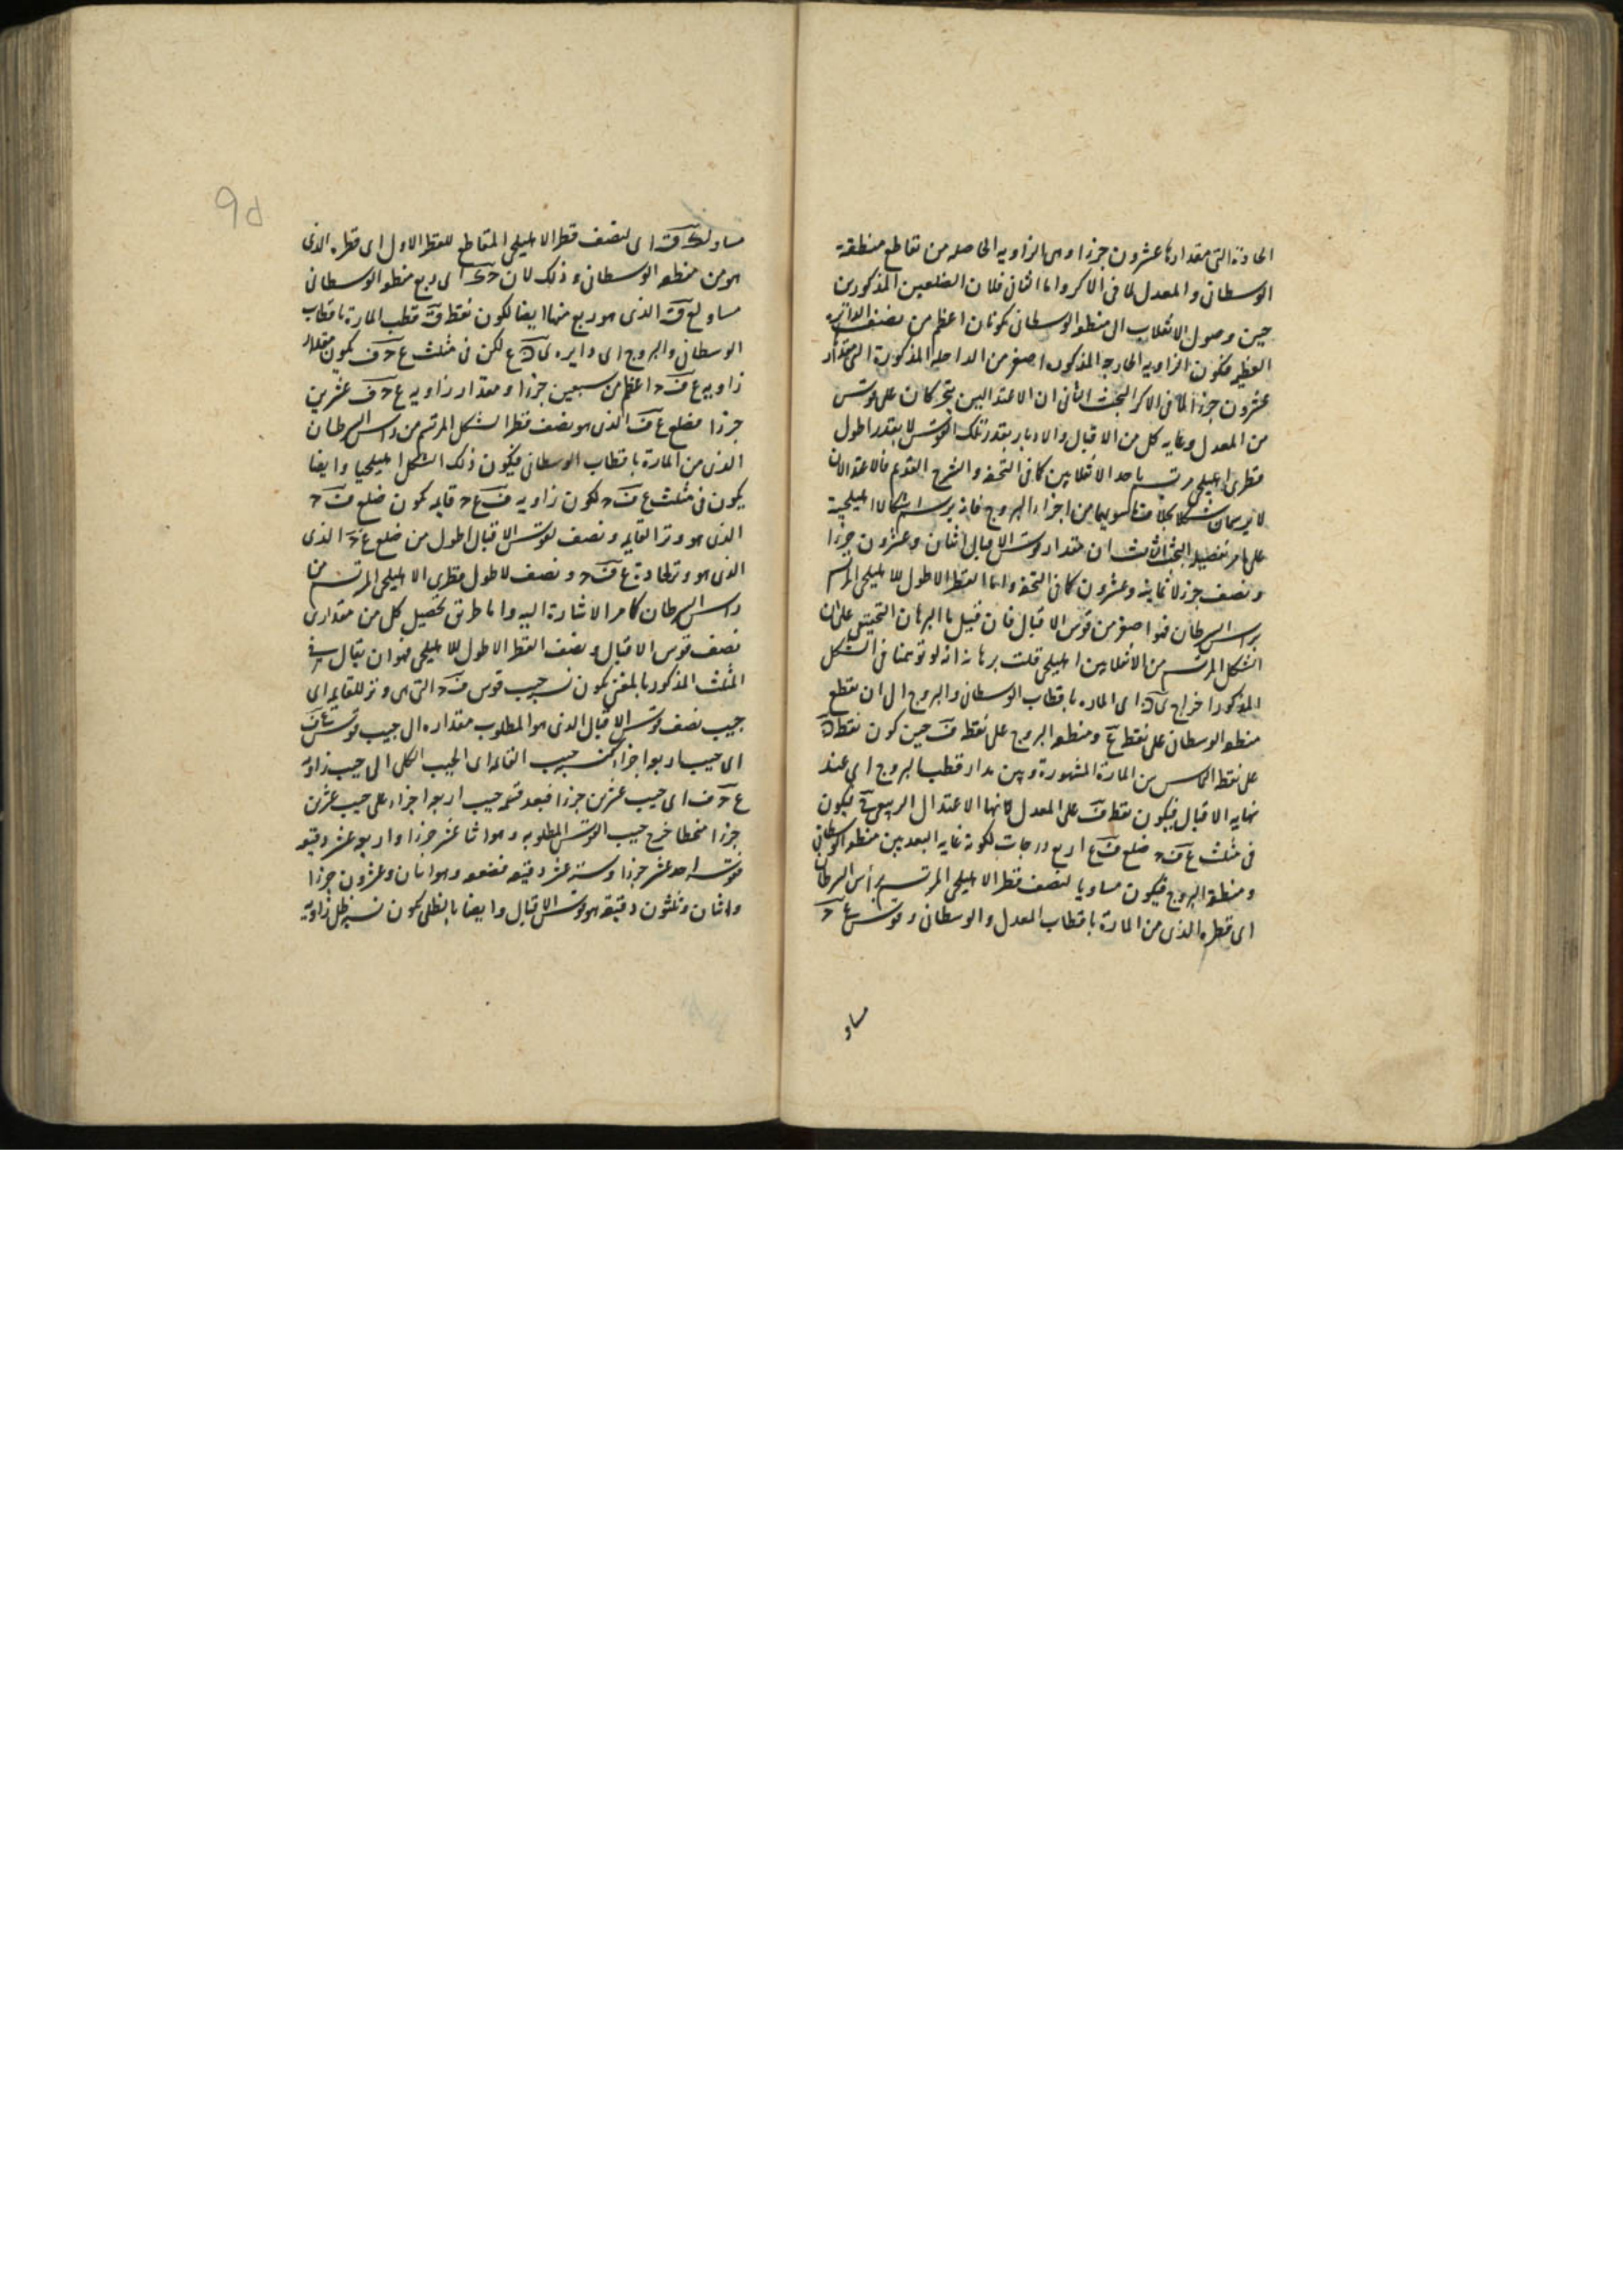 الحادة التى مقدارها عشرون جزءا وهى الزاويه الحاصله من تقاطع منطقة
الوسطانى والمعدل لما فى الاكر واما الثانى فلان الضلعين المذكورين
حين وصول الانقلاب الى منطقه الوسطانى يكونان اعظم من نصف الدائره
العظيمه فتكون الزاويه الخارجه المذكوره اصغر من الداخله المذكورة التى مقدار
عشرون جزءا لما فى الاكر البحث الثانى ان الاعتدالين يتحركان على قوس
من المعدل وغايه كل من الاقبال والادبار بقدر تلك القوس لا بقدر اطول
قطرى اهليلجى مرتسم باحد الانقلابين كما فى التحفه والشرح القديم فالاعتدالان
لا يرسمان شكلا بخلاف ما سويهما من اجزاء البروج فانه يرسم اشكالا اهليلجية
على ما مر تفصيله البحث الثالث ان مقدار قوس الاقبال اثنان وعشرون جزءا
ونصف جزء لا ثمانيه وعشرون كما فى التحفه واما القطر الاطول للاهليلجى المرتسم
براس السرطان فهو اصغر من قوس الاقبال فان قيل ما البرهان التحقيقى على ان
الشكل المرتسم من الانقلابين اهليلجى قلت برهانه انه لو توهمنا فى الشكل
المذكور اخراج اى الماره باقطاب الوسطانى والبروج الى ان تقطع
منطقه الوسطانى على نقطه ع ومنطقه البروج على نقطه ف حين كون نقطه
على نقطه التماس بين المارة المشهورة وبين مدار قطب البروج اى عند
نهايه الاقبال فيكون نقطه ف على المعدل لانها الاعتدال الربيعى فيكون
فى مثلث ع ف ح ضلع ف ع اربع درجات لكونه غايه البعد بين منطقه الوسطانى
ومنطقة البروج فيكون مساويا لنصف قطر الاهليلجى المرتسم براس السرطان
اى قطره الذى من المارة باقطاب المعدل والوسطانى وقوس ع ح
مساو
مساو اى لنصف قطر الاهليلجى المقاطع للقطر الاول اى قطره الذى
هو من منطقه الوسطانى وذلك لان اى ربع منطقه الوسطانى
مساو الذى هو ربع منها ايضا لكون نقطه ق قطب المارة باقطاب
الوسطانى والبروج اى دايره لكن فى مثلث ع ح ف يكون مقدار
زاويه ع ف ح اعظم من سبعين جزءا ومقدار زاويه ع ح ف عشرين
جزءا فضلع ع ف الذى هو نصف قطر الشكل المرتسم من راس السرطان
الذى من المارة باقطاب الوسطانى فيكون ذلك الشكل اهليلجيا وايضا
يكون فى مثلث ع ف ح لكون زاويه ف ع ح قايمه يكون ضلع ف ح
الذى هو وتر القايمه ونصف لقوس الاقبال اطول من ضلع ع ح الذى
الذى هو وتر لحادة ع ف ح ونصف لاطول قطرى الاهليلجى المرتسم من
راس السرطان كما مر الاشارة اليه واما طريق تحصيل كل من مقدارى
نصف قوس الاقبال ونصف القطر الاطول للاهليلجى فهو ان يقال فى
المثلث المذكور بالمغنى يكون نسبه جيب قوس ف ح التى هى وتر للقايمه اى
جيب نصف قوس الاقبال الذى هو المطلوب مقداره الى جيب قوس ع ف
اى جيب اربعه اجزاء كنسبه جيب القايمه اى الجيب الكلى الى جيب زاويه
ع ح ف اى جيب عشرين جزءا فبعد قسمه جيب اربعه اجزاء على جيب عشرين
جزءا منحطا خرج جيب القوس المطلوبه وهو اثنا عشر جزءا واربعه عشر دقيقه
قوسه احد عشر جزءا وسته عشر دقيقه فضعفه وهو اثنان وعشرون جزءا
واثنان وثلثون دقيقه هو قوس الاقبال وايضا بالظلى يكون نسبه ظل زاويه